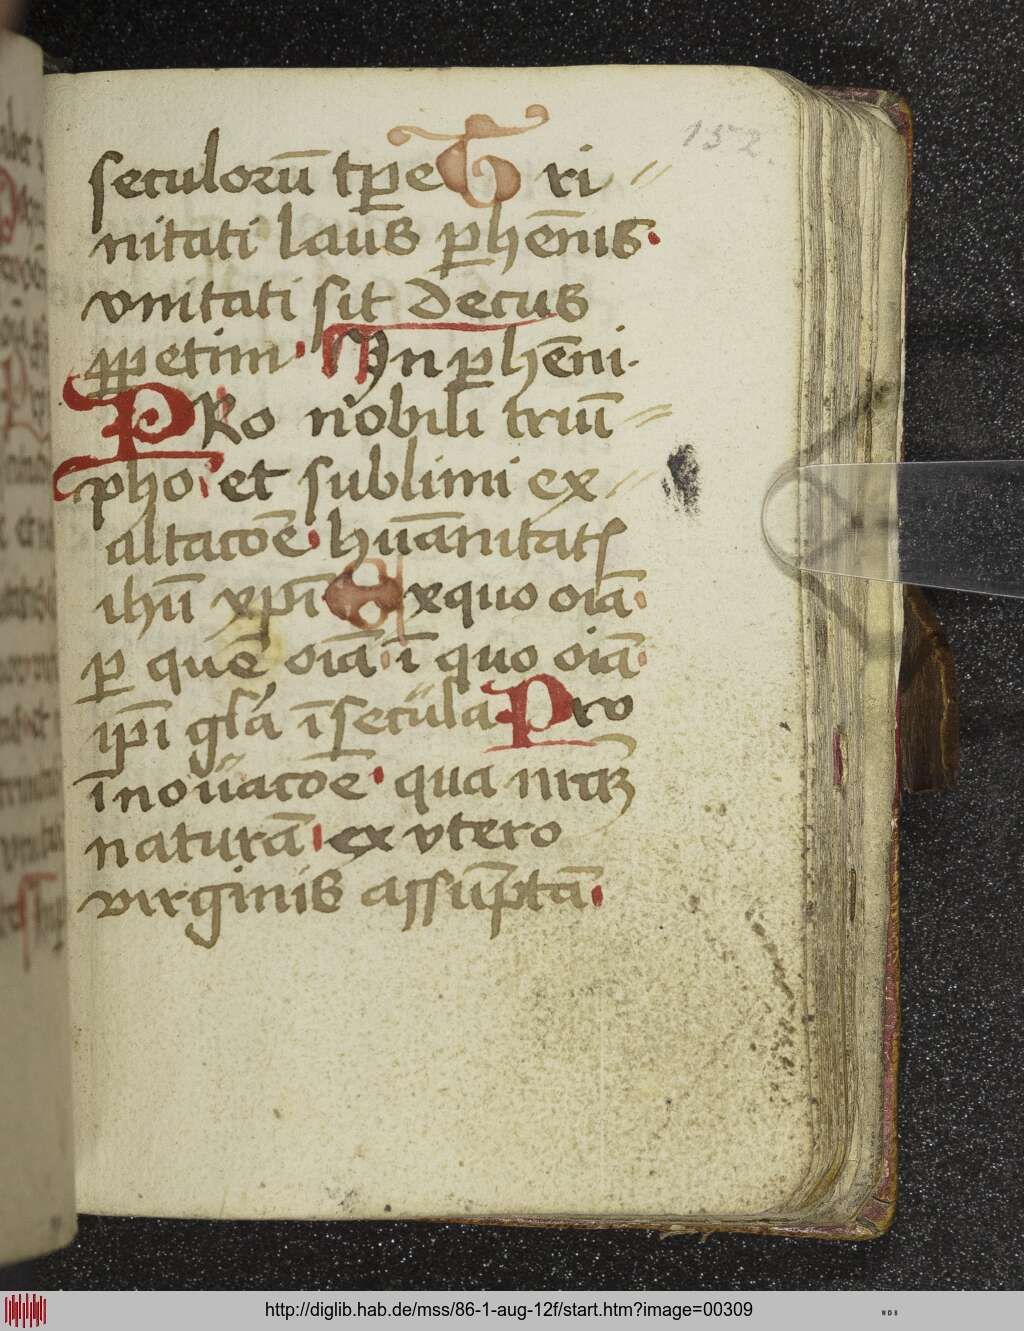 152.
seculorū tꝑe Tri //
nitati laus ꝑhēnis.
vnitati sit decus
ꝑpetim. yn ꝑhēni.
PRo nobili triū //
pho. et sublimi ex //
altacōe. hūanitatꝭ
ihū xpī Exquo oīa.
ꝑ quē oīa. ī quo oīa.
ip̄i gl̄a ī secula Pro
īnouacōe. qua nr̄aꝫ
naturā. ex vtero
virginis assūptā.
http://diglib.hab.de/mss/86-1-aug-12f/start.htm?image=00309